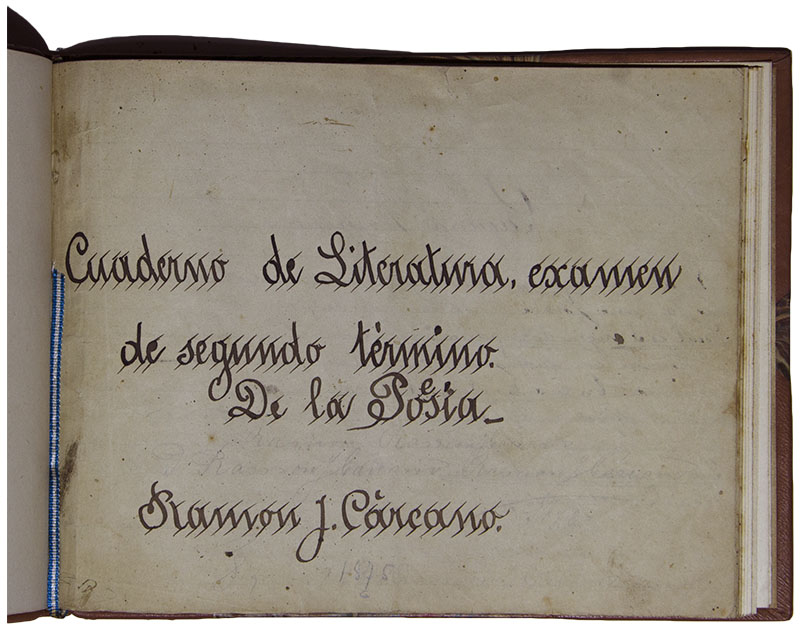 Cuaderno de Literatura, examen
de segundo término.
De la Poesía_
Ramon J. Cárcano.
1875